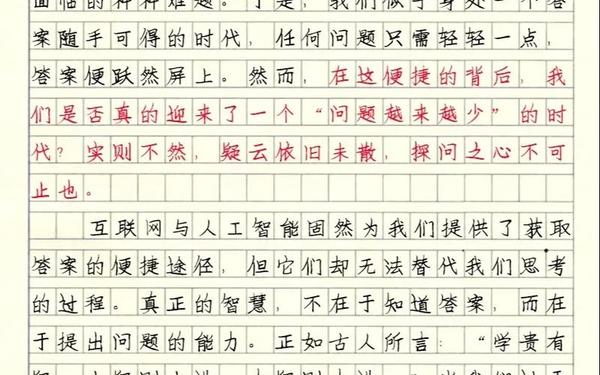 面临的种种难题。于是，我们似乎身处一个答
案随手可得的时代，任何问题只需轻轻一点，
答案便跃然屏上。然而，在这便捷的背后，我
们是否真的迎来了一个“问题越来越少”的时
代？实则不然，疑云依旧未散，探问之心不可
止也。
互联网与人工智能固然为我们提供了获取
答案的便捷途径，但它们却无法替代我们思考
的过程。真正的智慧，不在于知道答案，而在
于提出问题的能力。正如古人所言：“学贵有